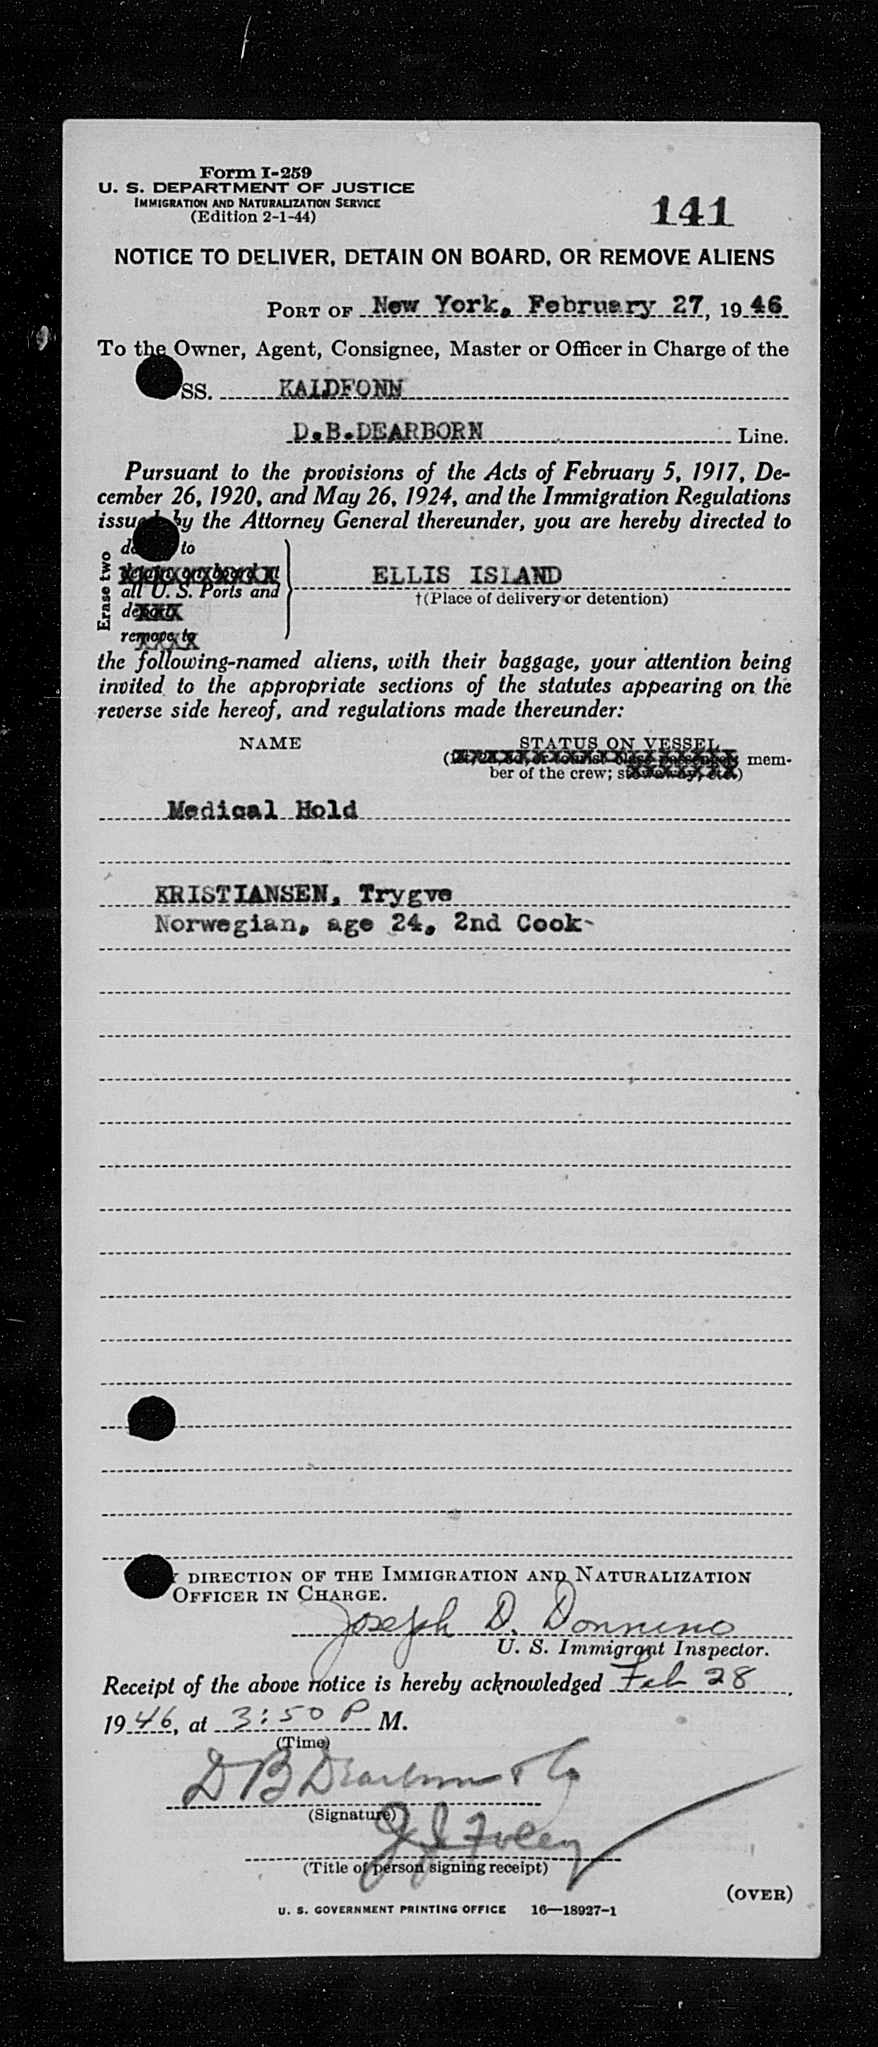 Form I-259
U. S. DEPARTMENT OF JUSTICE
IMMIGRATION AND NATURALIZATION SERVICE
(Edition 2-1-44)
141
NOTICE TO DELIVER, DETAIN ON BOARD, OR REMOVE ALIENS
PORT OF New York, February 27, 1946
To the Owner, Agent, Consignee, Master or Officer in Charge of the
SS. KALDFONN
D.B.DEARBORN Line.
Pursuant to the provisions of the Acts of February 5, 1917, De-
cember 26, 1920, and May 26, 1924, and the Immigration Regulations
issued by the Attorney General thereunder, you are hereby directed to
Erase two
to
all U. S. Ports and
remove to
ELLIS ISLAND
†(Place of delivery or detention)
the following-named aliens, with their baggage, your attention being
invited to the appropriate sections of the statutes appearing on the
reverse side hereof, and regulations made thereunder:
NAME STATUS ON VESSEL
mem-
ber of the crew;
Medical Hold
KRISTIANSEN, Trygve
Norwegian, age 24, 2nd Cook-
DIRECTION OF THE IMMIGRATION AND NATURALIZATION
OFFICER IN CHARGE.
Joseph D. Donnino
U. S. Immigrant Inspector.
Receipt of the above notice is hereby acknowledged Feb 28,
1946, at 3:50 P M.
(Time)
D B Dearborn & Co
(Signature)
J J Foley
(Title of person signing receipt)
(OVER)
U. S. GOVERNMENT PRINTING OFFICE 16—18927-1